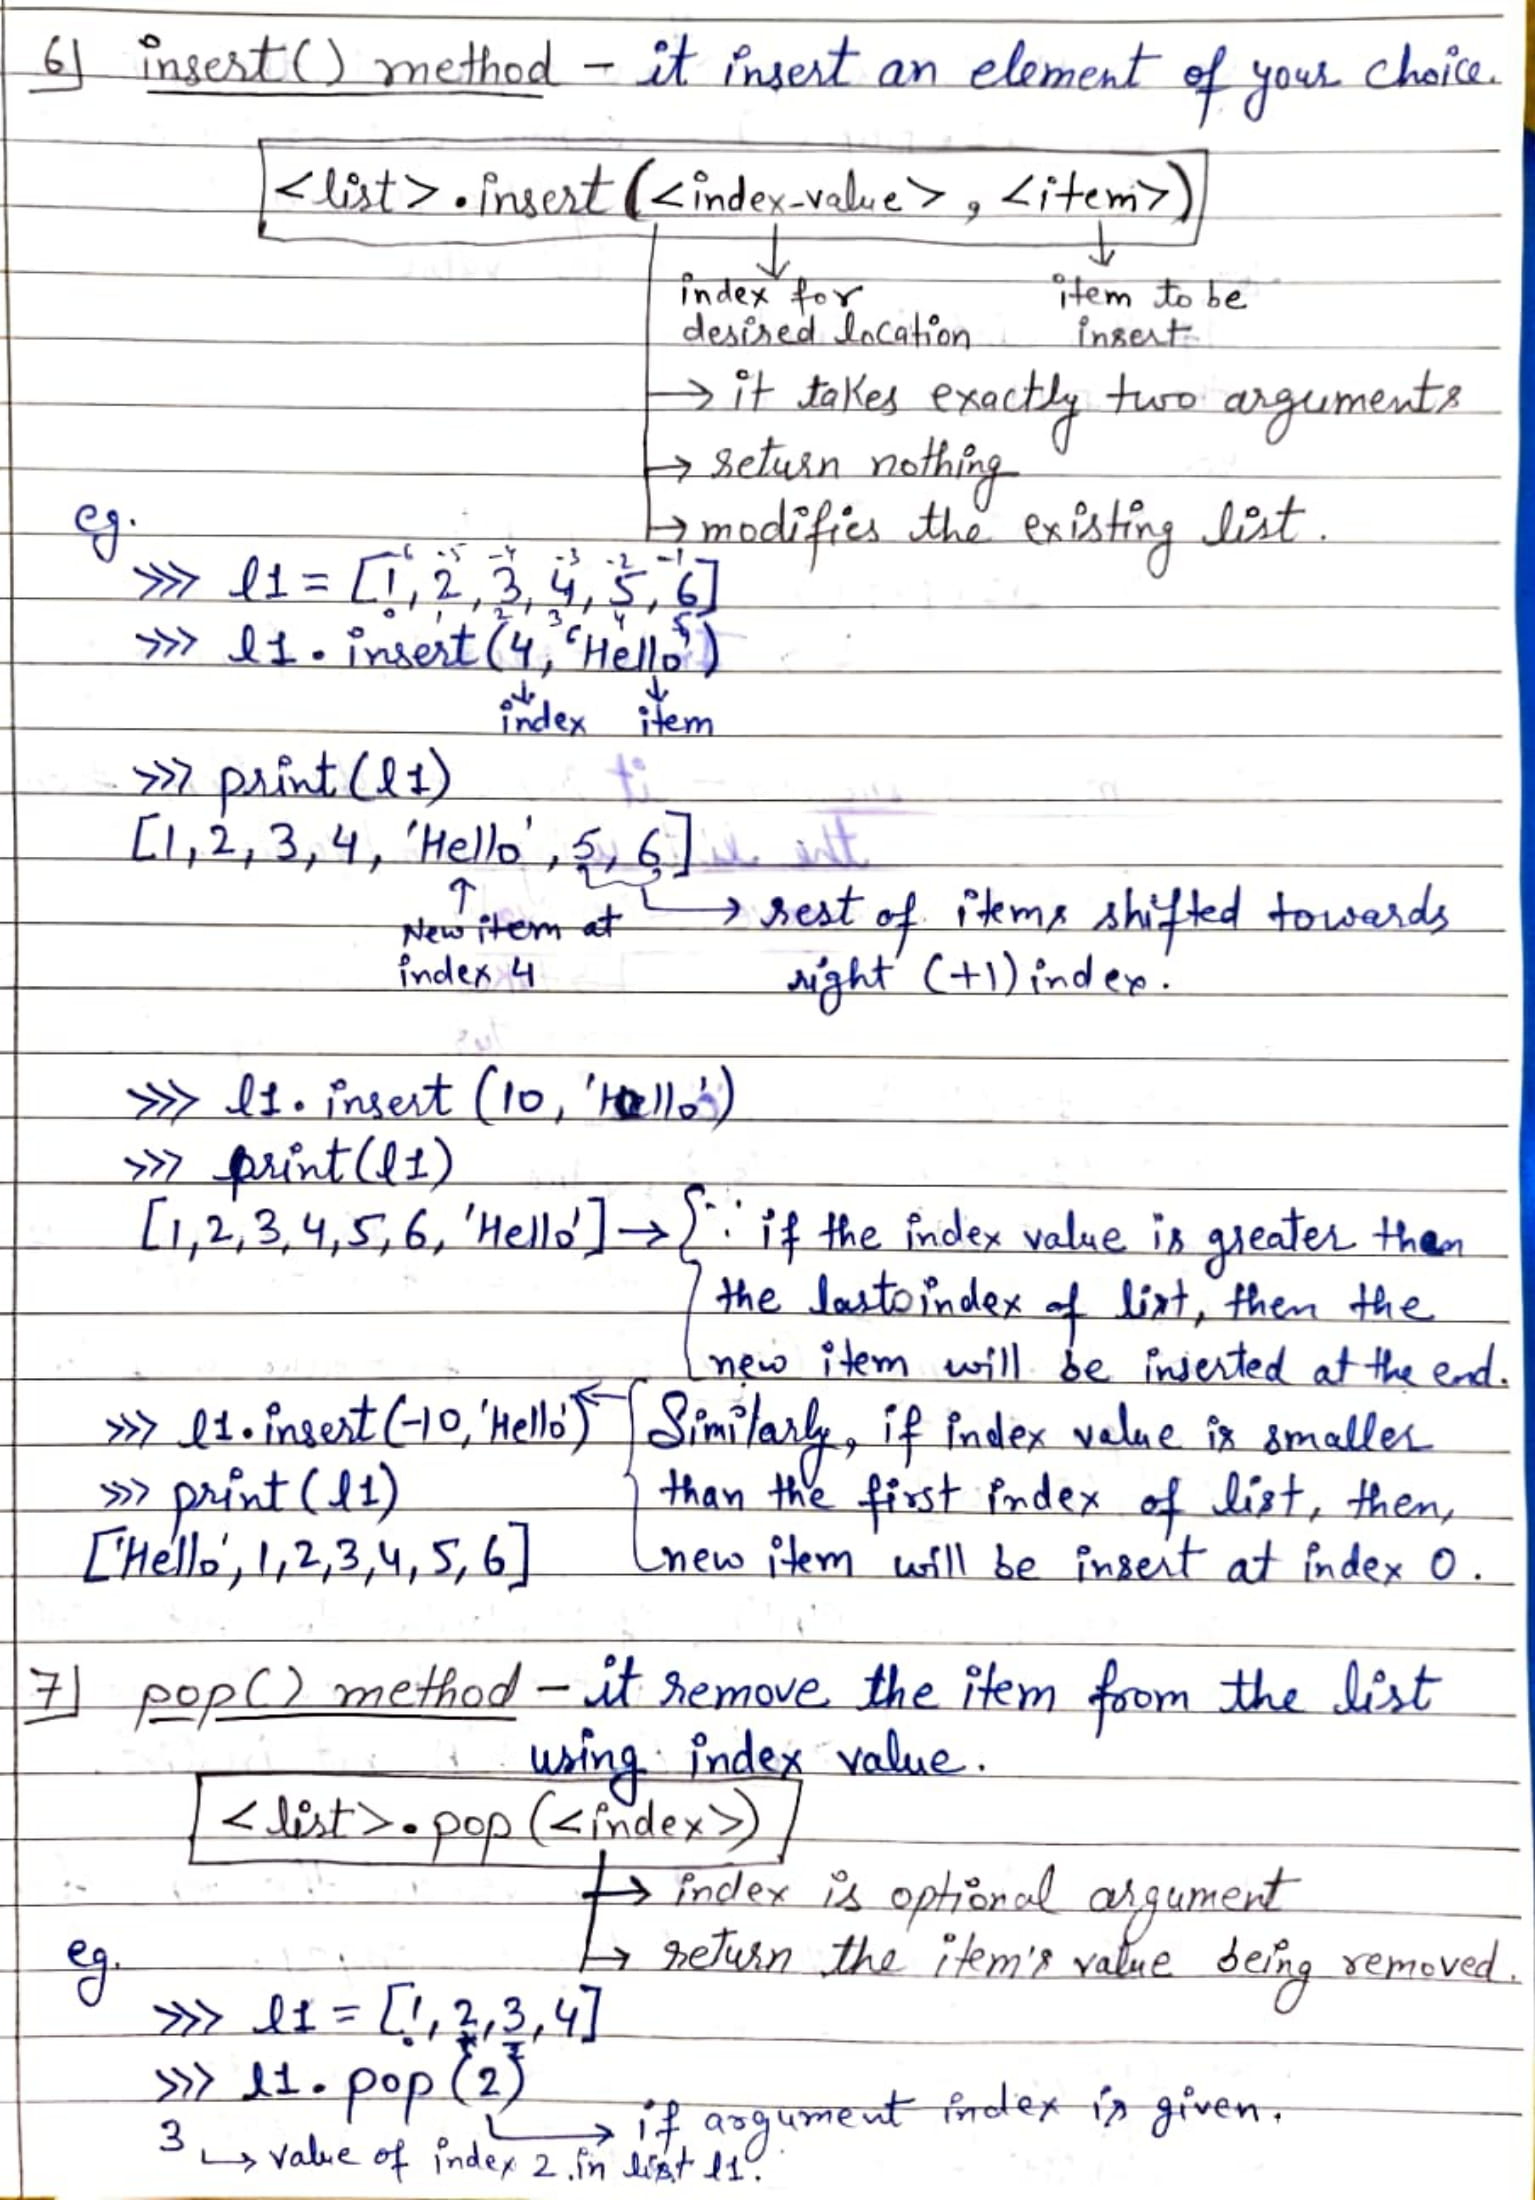 6] insert() method - it insert an element of your choice.
<list>.insert(<index-value>, <item>)
index for item to be
desired location insert
→ it takes exactly two arguments
→ return nothing
eg.
→ modifies the existing list.
-6 -5 -4 -3 -2 -1
>>> l1 = [1, 2, 3, 4, 5, 6]
0 1 2 3 4 5
>>> l1.insert(4, 'Hello')
index item
>>> print(l1)
[1, 2, 3, 4, 'Hello', 5, 6]
New item at → rest of items shifted towards
index 4 right (+1) index.
>>> l1.insert (10, 'Hello')
>>> print(l1)
[1,2,3,4,5,6, 'Hello'] → { ∵ if the index value is greater than
the last index of list, then the
new item will be inserted at the end.
>>> l1.insert(-10, 'Hello') ← { Similarly, if index value is smaller
>>> print(l1) than the first index of list, then,
['Hello', 1,2,3,4,5,6] new item will be insert at index 0.
7] pop() method - it remove the item from the list
using index value.
<list>.pop(<index>)
→ index is optional argument
eg. → return the item's value being removed.
>>> l1 = [1, 2, 3, 4]
>>> l1.pop(2)
→ if argument index is given.
3 ↳ value of index 2 in list l1.